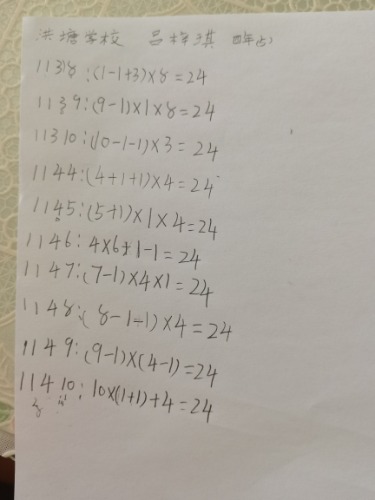 洪塘学校 吕梓淇 四年
1138:(1-1+3)×8=24
1139:(9-1)×1×8=24
11310:(10-1-1)×3=24
1144:(4+1+1)×4=24
1145:(5+1)×1×4=24
1146:4×6+1-1=24
1147:(7-1)×4×1=24
1148:(8-1-1)×4=24
1149:(9-1)×(4-1)=24
11410:10×(1+1)+4=24